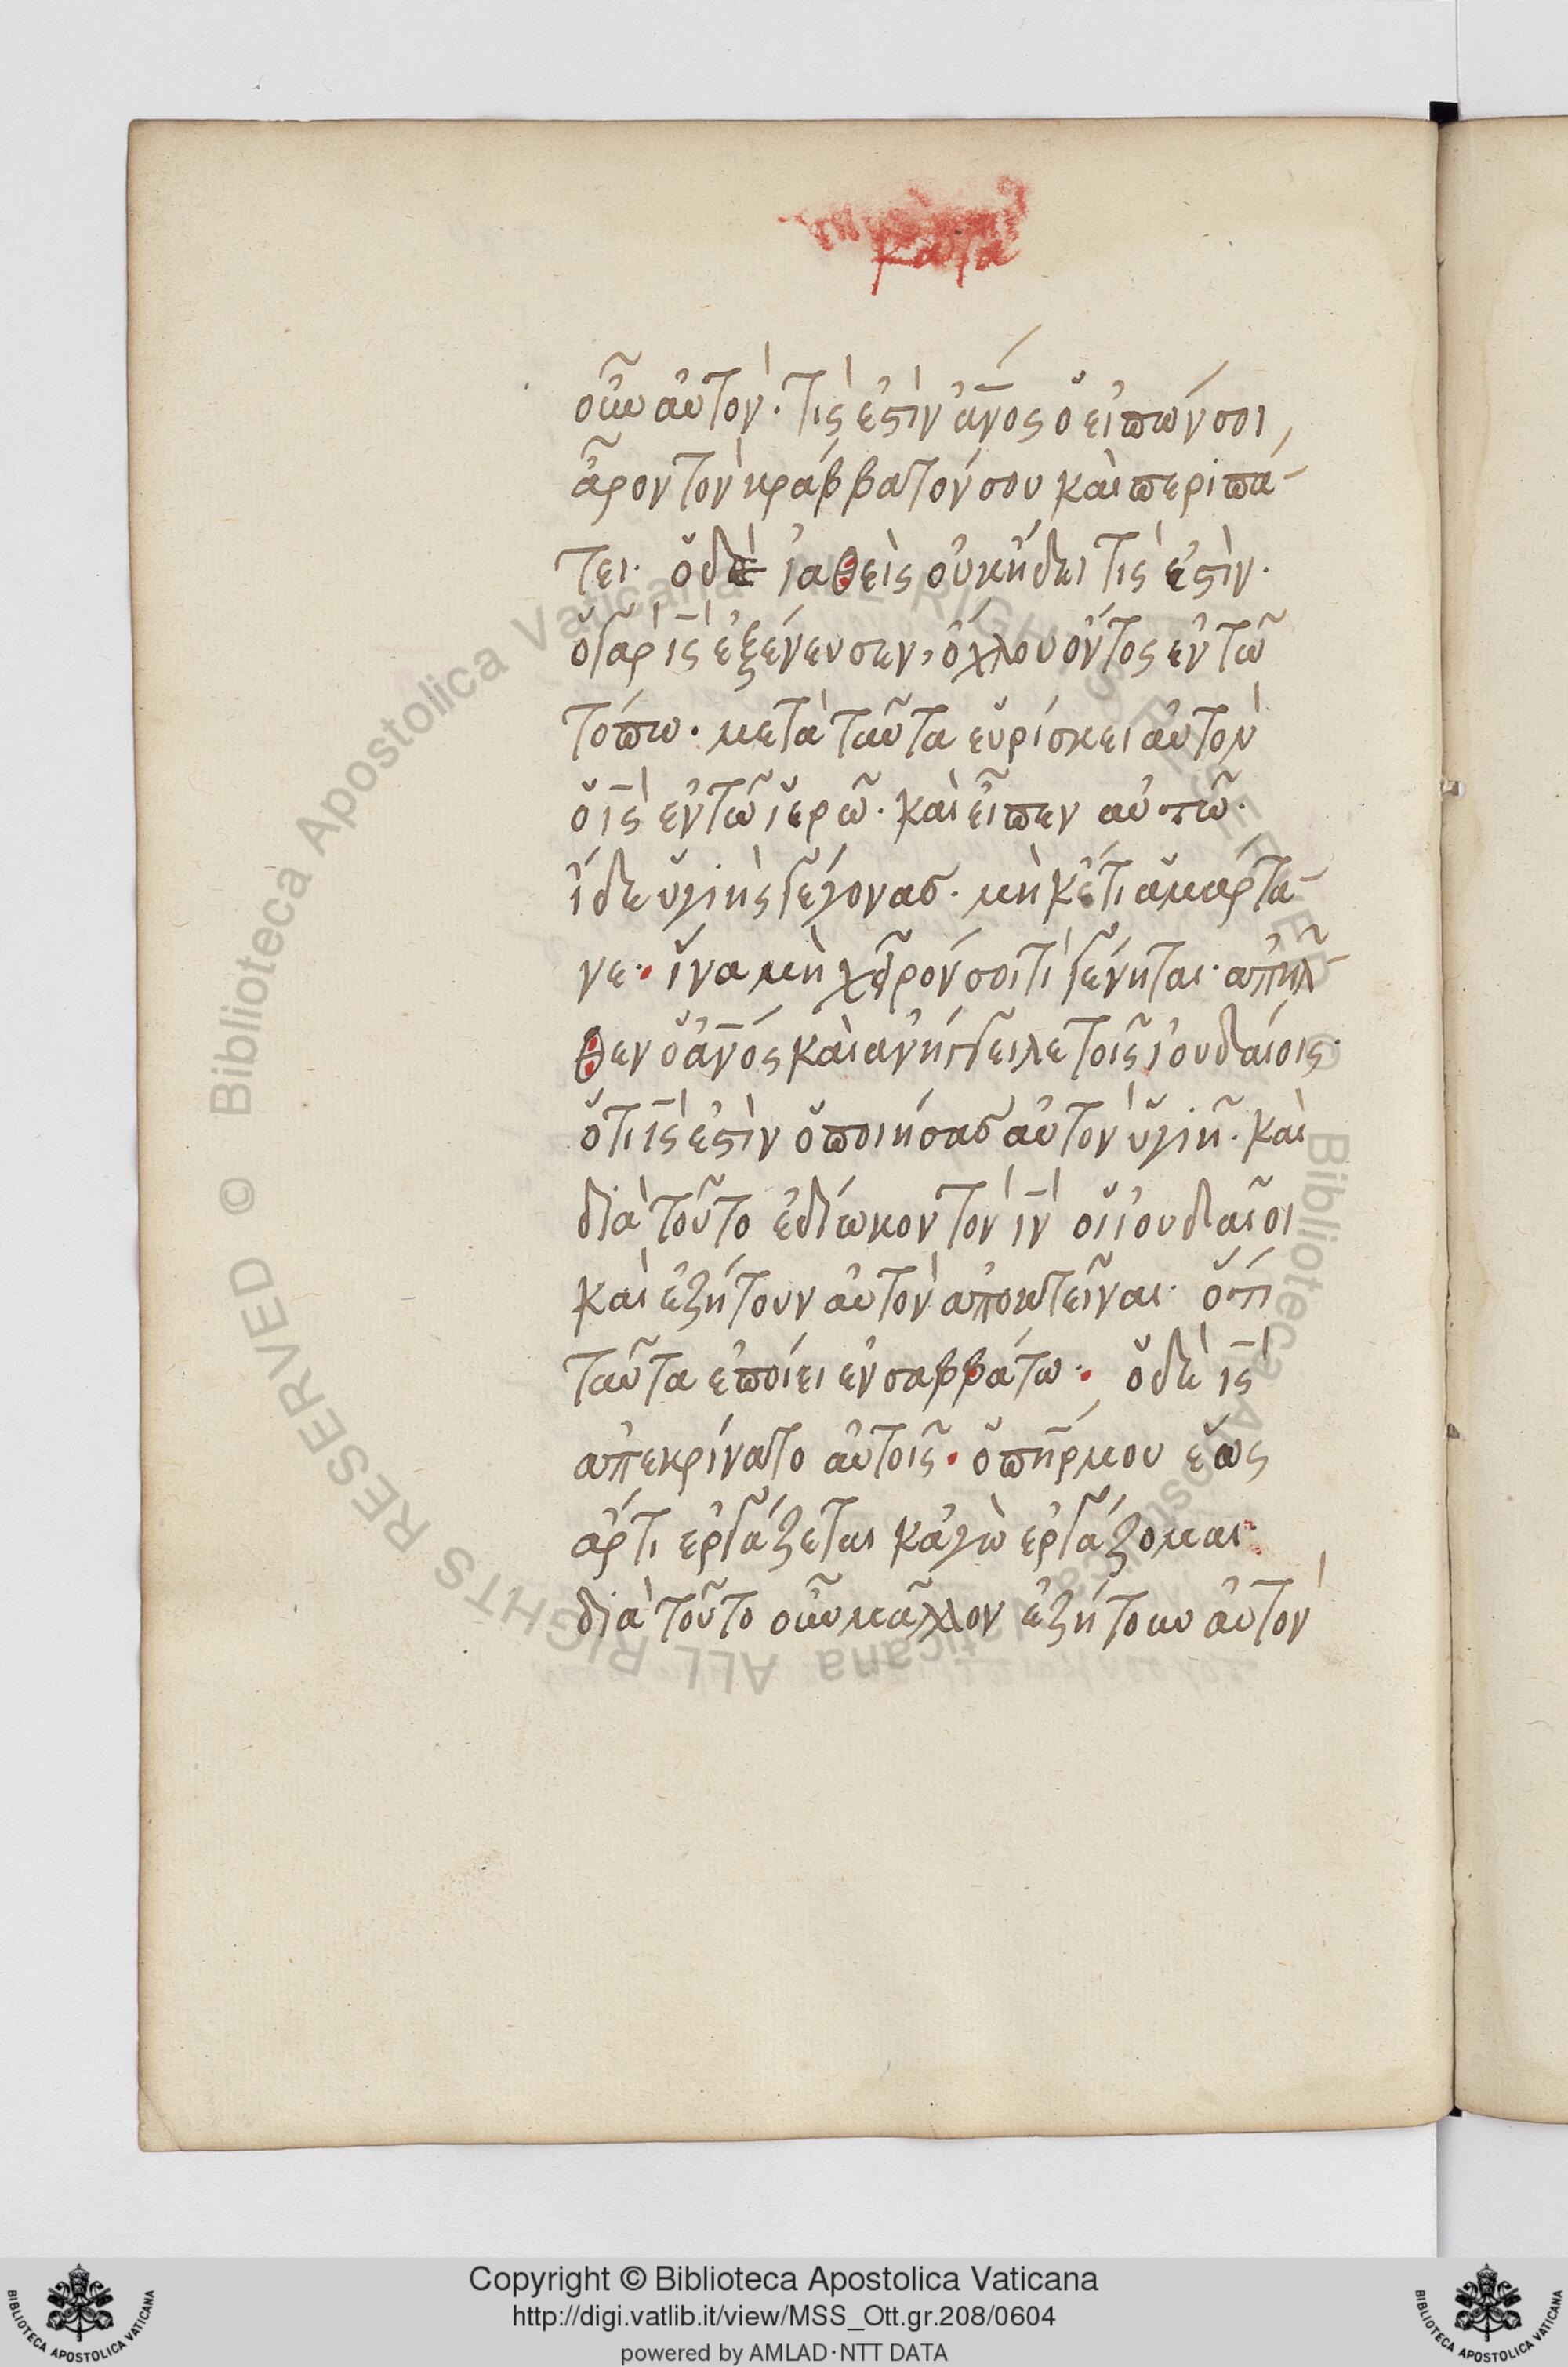 κατα
οὖν αὐτόν· τίς ἐστὶν ἄνος ὁ εἰπών σοι,
ἆρον τὸν κράββατόν σου καὶ περιπά-
τει· ὁ δὲ ἰαθεὶς οὐκ ήδει τίς ἐστὶν·
ὁ γὰρ ις ἐξένευσεν, ὄχλου ὄντος ἐν τῶ
τόπω· μετὰ ταῦτα εὑρίσκει αὐτὸν
ὁ ις ἐν τῶ ἱερῶ· καὶ εἶπεν αὐτῶ·
ἴδε ὑγιὴς γέγονας· μηκέτι ἁμάρτα-
νε· ἵνα μὴ χεῖρόν σοί τι γένηται· ἀπῆλ-
θεν ὁ ἄνος καὶ ἀνήγγειλε τοῖς ἰουδαίοις·
ὅτι ις ἐστὶν ὁ ποιήσας αὐτὸν ὑγιῆ· καὶ
διὰ τοῦτο ἐδίωκον τὸν ιν οἱ ἰουδαῖοι
καὶ ἐζήτουν αὐτὸν ἀποκτεῖναι· ὅτι
ταῦτα ἐποίει ἐν σαββάτω· ὁ δὲ ις
ἀπεκρίνατο αὐτοῖς· ὁ πηρ μου ἕως
ἄρτι ἐργάζεται κἀγὼ ἐργάζομαι·
διὰ τοῦτο οὖν μᾶλλον ἐζήτουν αὐτὸν
© Biblioteca Apostolica Vaticana ALL RIGHTS RESERVED © Biblioteca Apostolica Vaticana ALL RIGHTS RESERVED
Copyright © Biblioteca Apostolica Vaticana
http://digi.vatlib.it/view/MSS_Ott.gr.208/0604
powered by AMLAD·NTT DATA
BIBLIOTECA APOSTOLICA VATICANA
BIBLIOTECA APOSTOLICA VATICANA